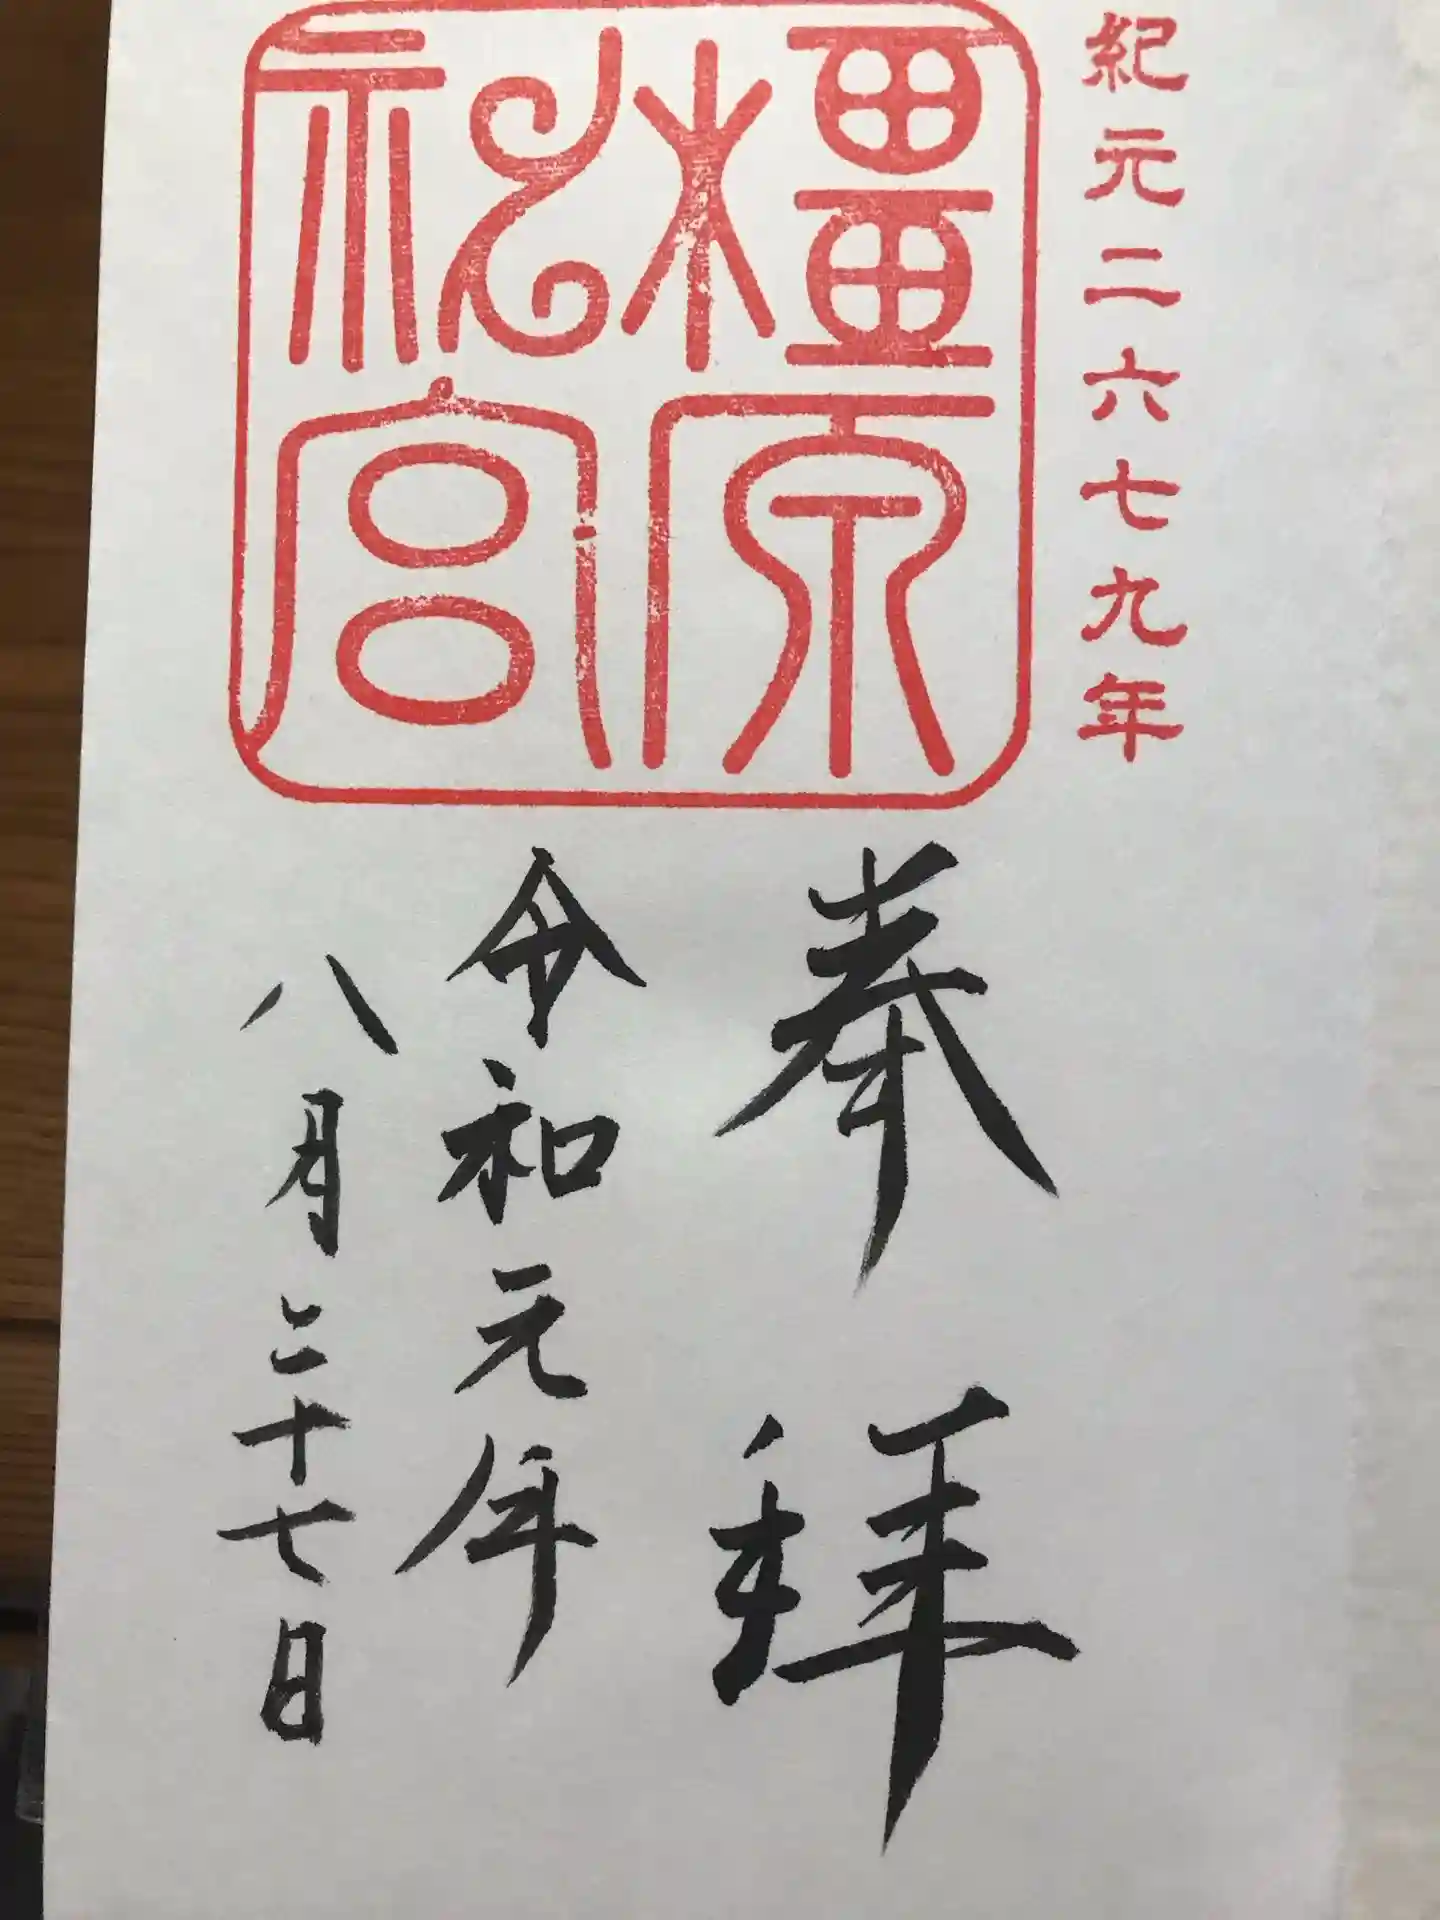 紀元二六七九年
橿原
神宮
奉拝
令和元年
八月二十七日